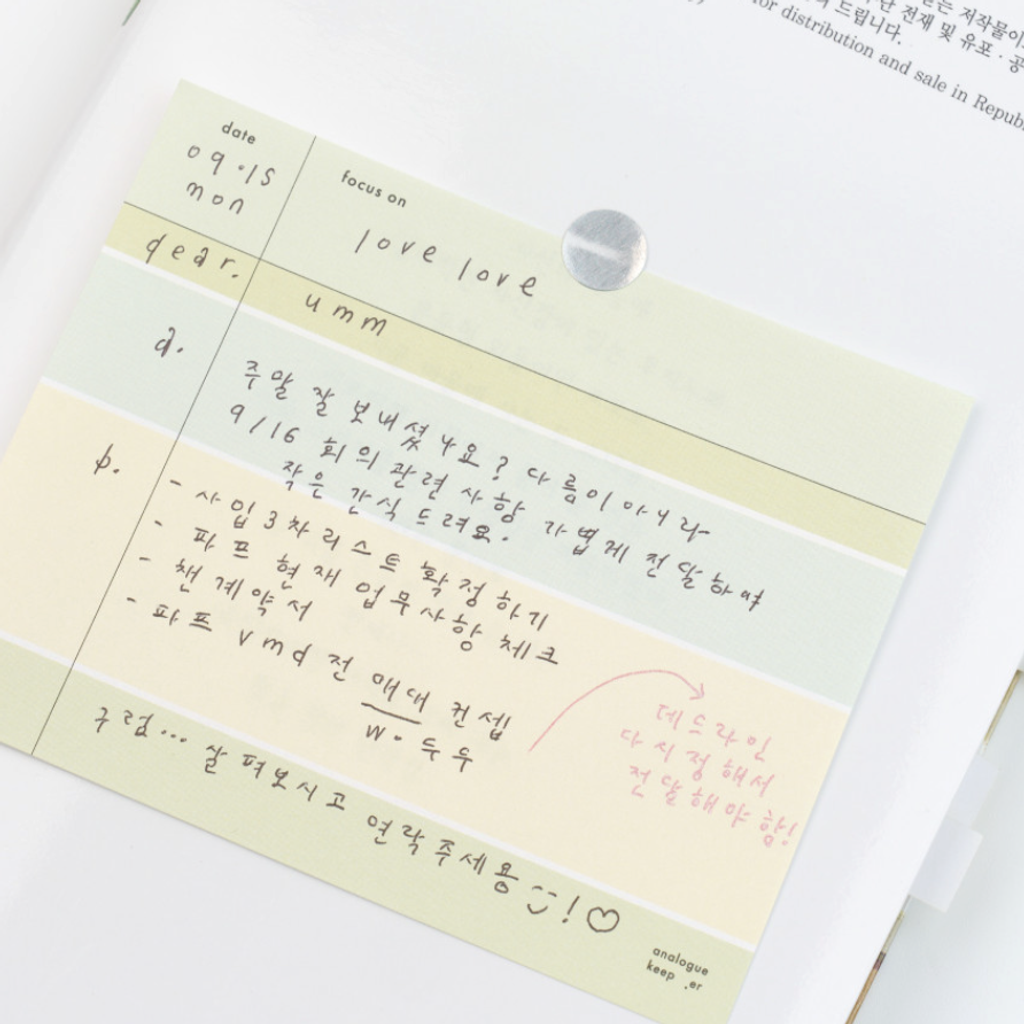 는 저작물이
단 전재 및 유포 · 공
드립니다.
for distribution and sale in Republ
date
09.15
mon
focus on
love love
dear.
umm
a.
주말 잘 보내셨나요? 다름이 아니라
9/16 회의 관련 사항 가볍게 전달하여
작은 간식 드려요.
b.
- 사입 3차 리스트 확정하기
- 파프 현재 업무사항 체크
- 챈 계약서
- 파프 vmd 전 매대 컨셉
w. 두두
데드라인
다시 정해서
전달해야 함!
구럼... 살펴보시고 연락주세용 !
analogue
keep .er